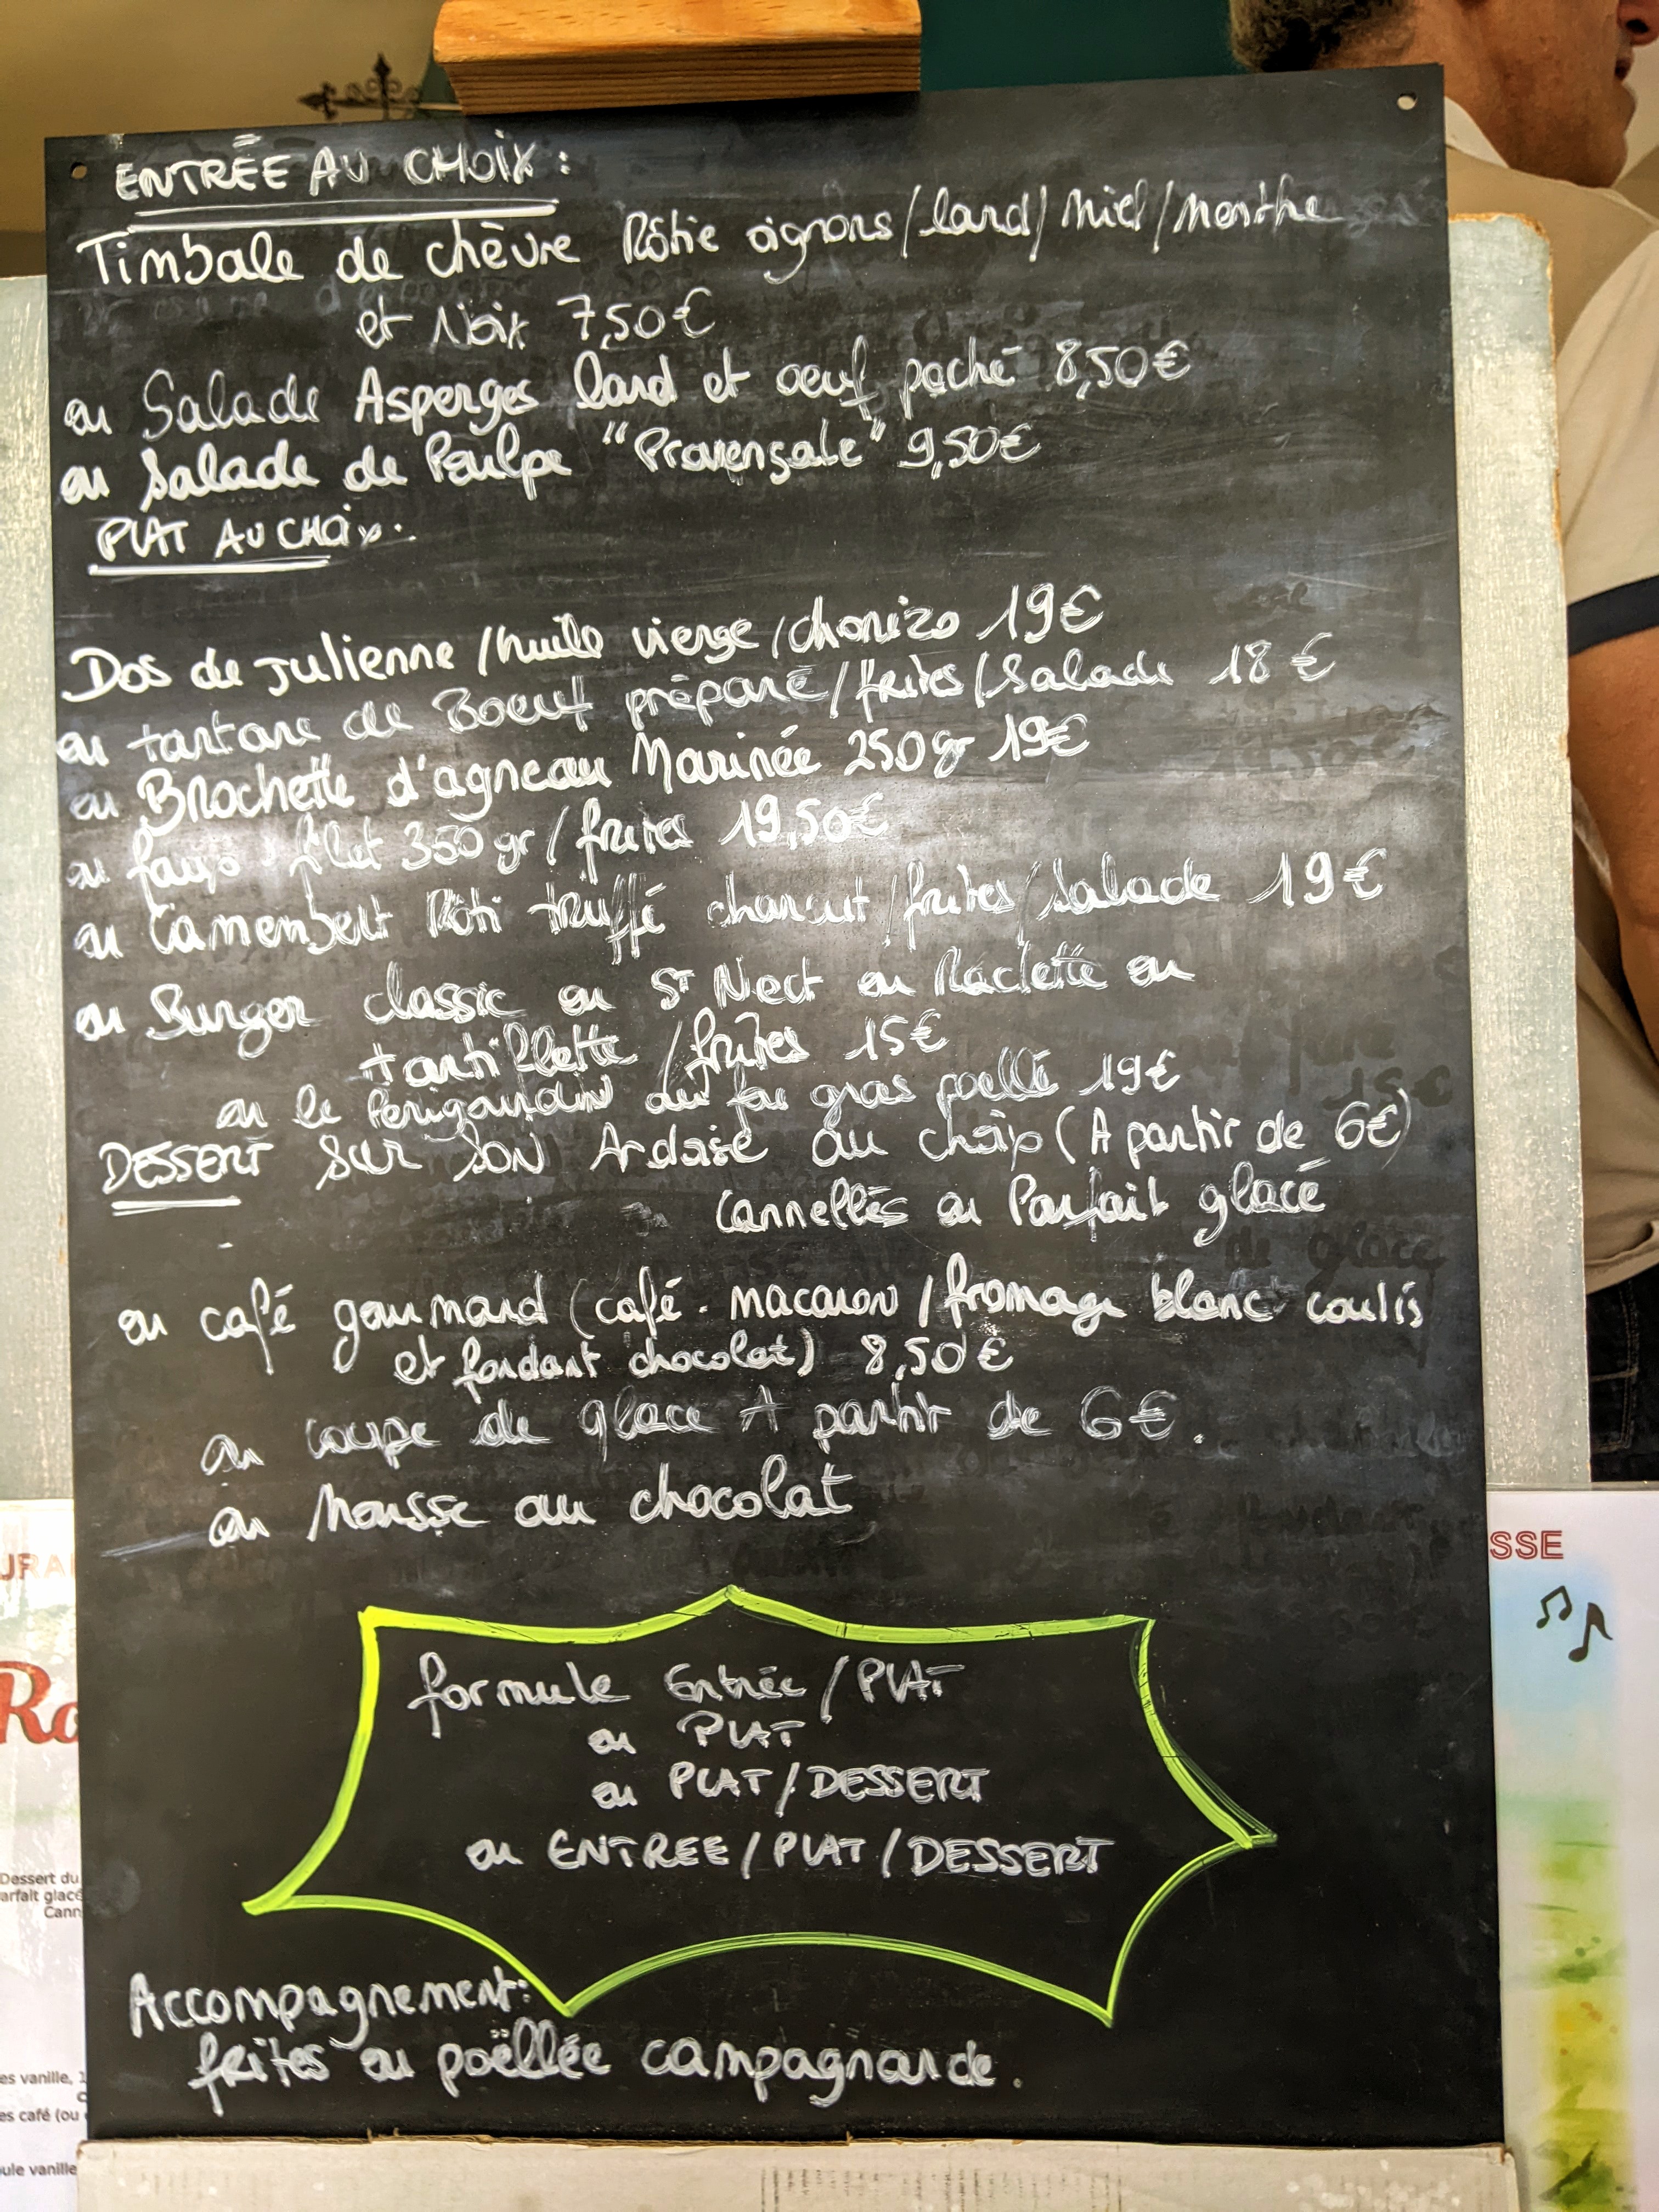 ENTRÉE AU CHOIX :
Timbale de chèvre Rôtie oignons / lard / miel / menthe
et Noix 7,50€
ou Salade Asperges lard et oeuf poché 8,50€
ou Salade de Poulpe "Provensale" 9,50€
PLAT AU CHOIX :
Dos de Julienne / huile vierge / chorizo 19€
ou tartare de Boeuf préparé / frites / Salade 18€
ou Brochette d'agneau Marinée 250gr 19€
ou faux filet 350 gr / frites 19,50€
ou Camembert Rôti truffé charcut / frites / Salade 19€
ou Burger classic ou St Nect ou Raclette ou
tartiflette / frites 15€
ou le Perigourdin au foie gras poellé 19€
DESSERT sur son Ardoise au choix (A partir de 6€)
Cannellés ou Parfait glacé
ou café gourmand (café - macaron / fromage blanc coulis
et fondant chocolat) 8,50€
ou coupe de glace A partir de 6€.
ou Mousse au chocolat
formule Entrée / PLAT
ou PLAT
ou PLAT / DESSERT
ou ENTREE / PLAT / DESSERT
Accompagnement:
frites ou poëllée campagnarde.
SSE
Ro
Dessert du
arfait glacé
Cann
es vanille, 1
es café (ou
ule vanille